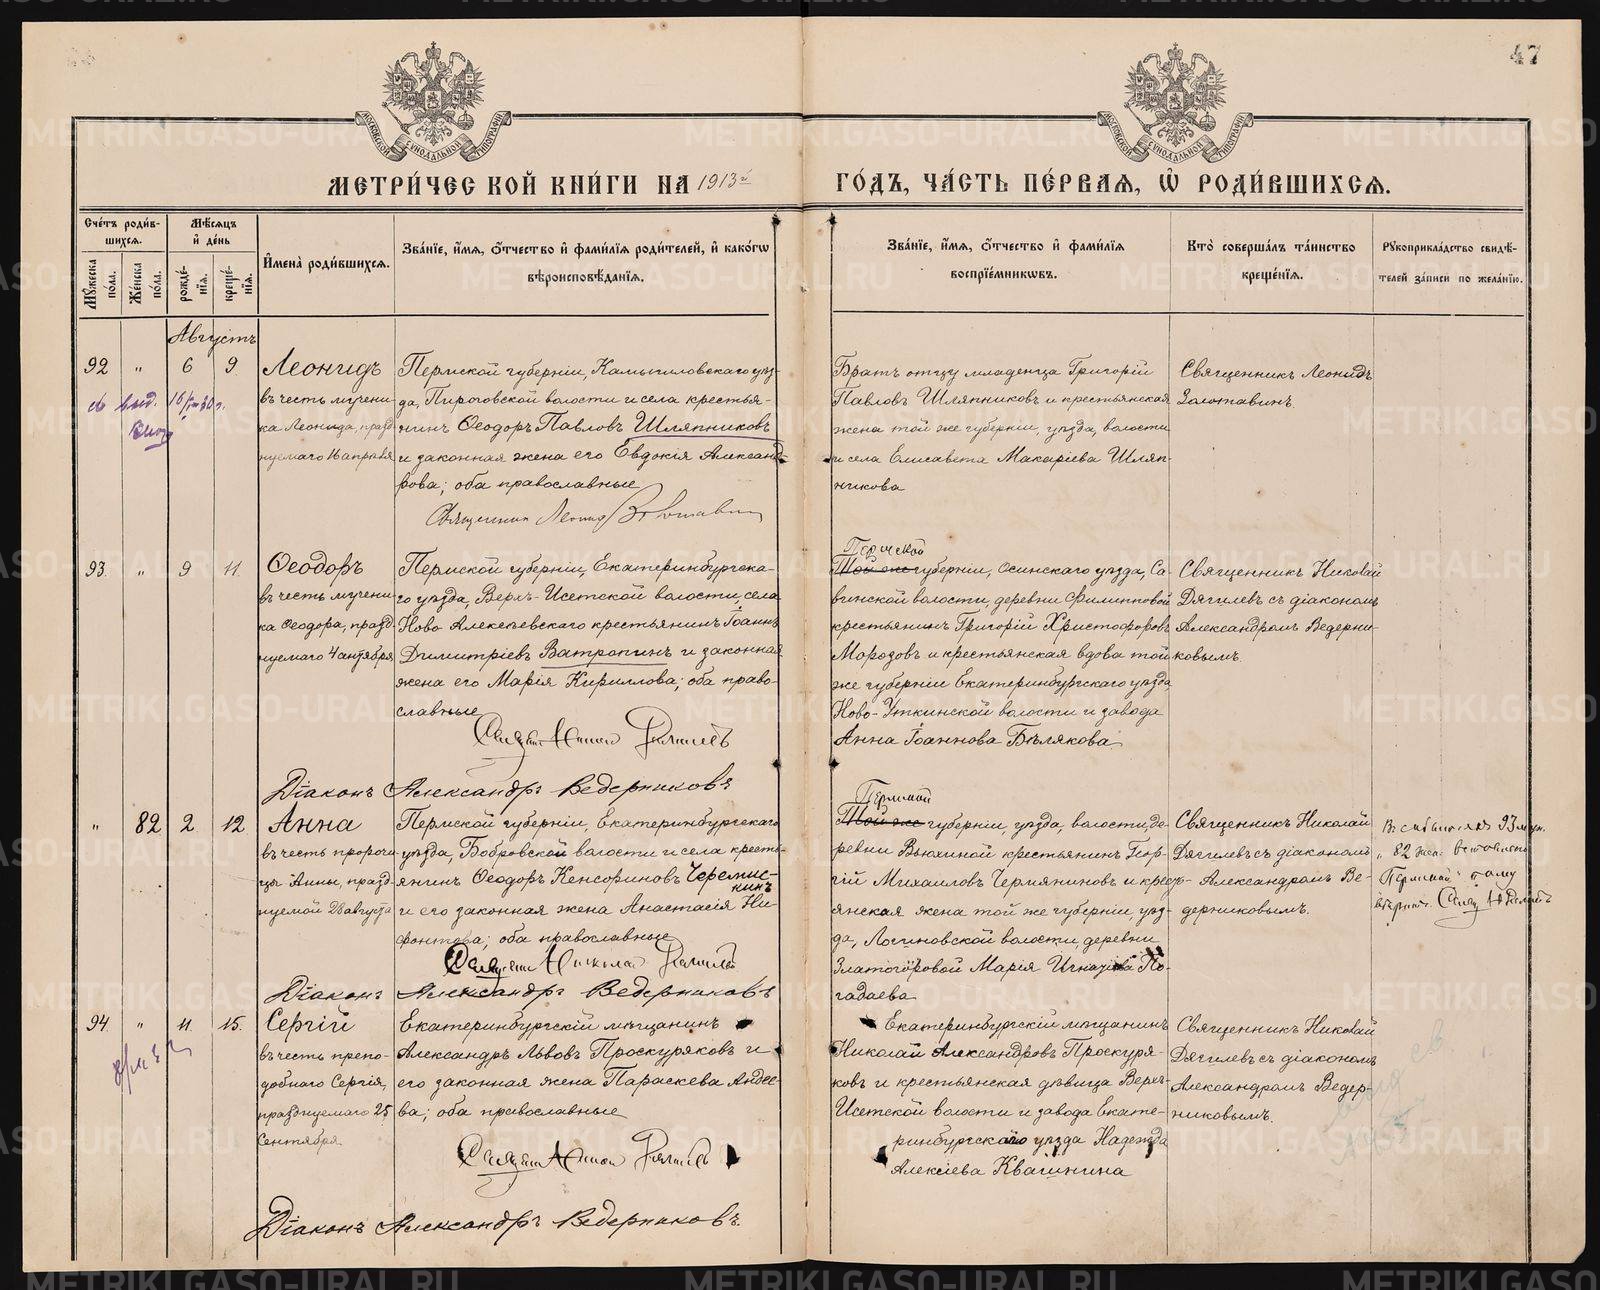 47
МОСКОВСКОЙ СѴНОДАЛЬНОЙ ТИПОГРАФІИ
МОСКОВСКОЙ СѴНОДАЛЬНОЙ ТИПОГРАФІИ
МЕТРИ́ЧЕС КОЙ КНИ́ГИ НА 1913й
ГО́ДЪ, ЧА́СТЬ ПЕ́РВАЯ, Ѡ҆ РОДИ́ВШИХСЯ.
Сче́тъ роди́в-
шихся.
Мѣ́сяцъ
и҆ де́нь
Му́жеска по́ла.
Же́нска по́ла.
рожде́-нїя.
креще́-нїя.
И҆мена̀ роди́вшихся.
Зва́нїе, и҆́мя, ѻ҆́тчество и҆ фами́лїя роди́телей, и҆ како́гѡ
вѣроисповѣ́данїя.
Зва́нїе, и҆́мя, ѻ҆́тчество и҆ фами́лїя
воспрїе́мникѡвъ.
Кто̀ соверша́лъ та́инство
креще́нїя.
Рукоприкла́дство свидѣ́-
телей за́писи по жела́нїю.
Августъ
92 " 6 9.
Леонидъ
въ честь мучени-
ка Леонида, празд-
нуемаго 16 апрѣля
Пермской губерніи, Камышловскаго уѣз-
да, Пироговской волости и села крестья-
нинъ Ѳеодоръ Павловъ Шляпниковъ
и законная жена его Евдокія Александ-
рова; оба православные
Священник Леонид Золотавин
Братъ отцу младенца Григорій
Павловъ Шляпниковъ и крестьянская
жена той же губерніи, уѣзда, волости
и села Елисавета Макаріева Шляп-
никова
Священникъ Леонидъ
Золотавинъ.
93. " 9 11.
Ѳеодоръ
въ честь мучени-
ка Ѳеодора, празд-
нуемаго 4 сентября
Пермской губерніи, Екатеринбургска-
го уѣзда, Верхъ-Исетской волости, села
Ново-Алексѣевскаго крестьянинъ Іоаннъ
Димитріевъ Ватропинъ и законная
жена его Марія Кириллова; оба право-
славные
Діаконъ Александръ Ведерниковъ
Пермской
Той же губерніи, Осинскаго уѣзда, Са-
винской волости, деревни Филипповой
крестьянинъ Григорій Христофоровъ
Морозовъ и крестьянская вдова той
же губерніи Екатеринбургскаго уѣзда,
Ново-Уткинской волости и завода
Анна Іоаннова Бѣлякова.
Священникъ Николай
Дягилевъ съ діакономъ
Александромъ Ведерни-
ковымъ.
" 82 2 12
Анна
въ честь пророчи-
цы Анны, празд-
нуемой 28 августа
Пермской губерніи, Екатеринбургскаго
уѣзда, Бобровской волости и села кресть-
янинъ Ѳеодоръ Кенсориновъ Черемис-
кинъ
и его законная жена Анастасія Ни-
фонтова; оба православные
Діаконъ Александръ Ведерниковъ
Пермской
Той же губерніи, уѣзда, волости, де-
ревни Вьюхиной крестьянинъ Геор-
гій Михаиловъ Чермяниновъ и крест-
янская жена той же губерніи, уѣз-
да, Логиновской волости, деревни
Златогоровой Марія Игнатіева По-
гадаева
Священникъ Николай
Дягилевъ съ діакономъ
Александромъ Ве-
дерниковымъ.
94. " 11. 15.
Сергій
въ честь препо-
добнаго Сергія,
празднуемаго 25
сентября.
Екатеринбургскій мѣщанинъ
Александръ Львовъ Проскуряковъ и
его законная жена Параскева Андрее-
ва; оба православные
Діаконъ Александръ Ведерниковъ.
Екатеринбургскій мѣщанинъ
Николай Александровъ Проскуря-
ковъ и крестьянская дѣвица Верхъ-
Исетской волости и завода Екате-
ринбургскаго уѣзда Надежда
Алексіева Квашнина
Священникъ Николай
Дягилевъ съ діакономъ
Александромъ Ведер-
никовымъ.
METRIKI.GASO-URAL.RU